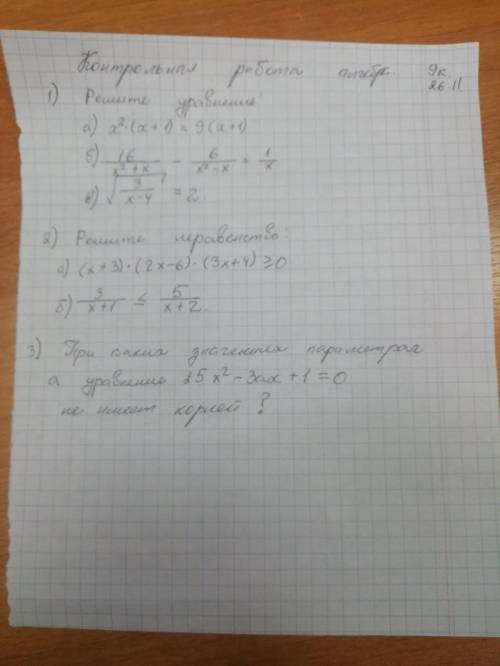 Контрольная работа алгебр. 9к.
26.11
1) Решите уравнение:
а) x²·(x+1) = 9(x+1)
б) 16/(x²+x) - 6/(x²-x) = 1/x
в) √(3/(x-4)) = 2.
2) Решите неравенство:
а) (x+3)·(2x-6)·(3x+4) ≥ 0
б) 3/(x+1) ≤ 5/(x+2).
3) При каких значениях параметрах
а уравнение 25x² - 3ax + 1 = 0
не имеет корней?